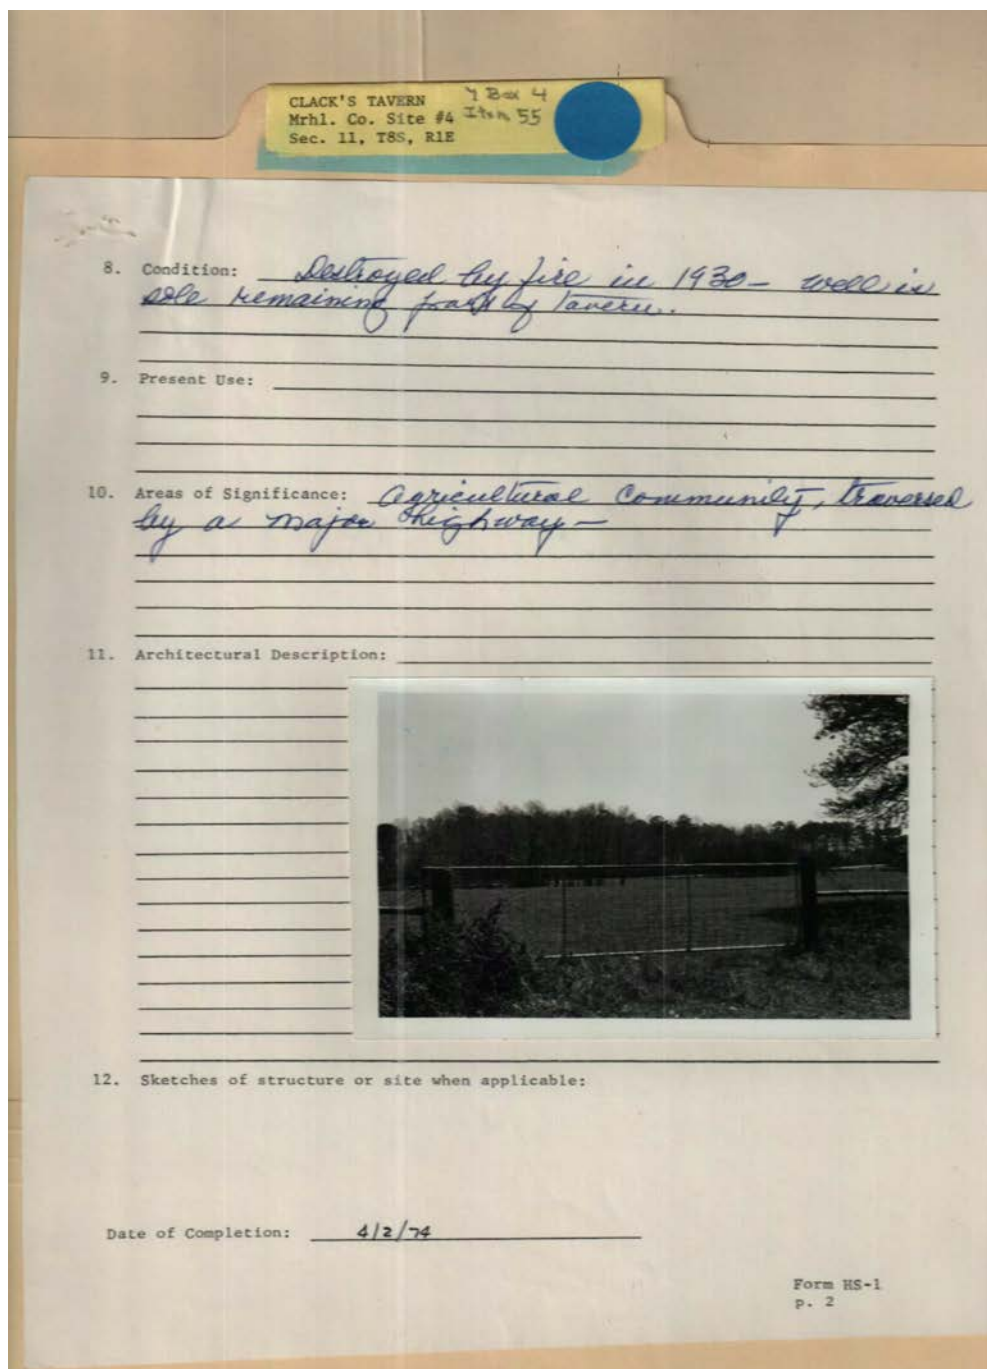 CLACK'S TAVERN
Mrhl. Co. Site #4
Sec. 11, T8S, R1E
Y Box 4
Item 55
8. Condition: Destroyed by fire in 1930 - well is
sole remaining part of tavern.
9. Present Use:
10. Areas of Significance: Agricultural Community, traversed
by a major highway -
11. Architectural Description:
12. Sketches of structure or site when applicable:
Date of Completion: 4/2/74
Form HS-1
p. 2